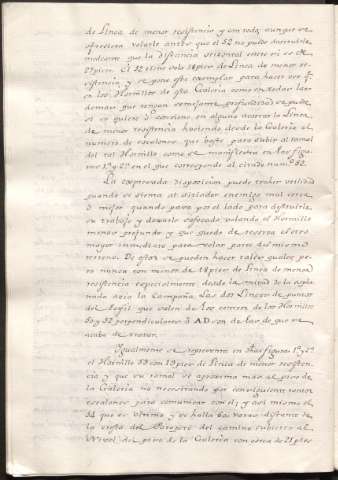 de Linea de menor resistencia y con todo aunque se
ofreciera volarle antes que el 52 no pudo
mediante que la distancia orizontal entre si es de
27 pies. El 52 tiene solo 18 pies de Linea de menor re-
sistencia y se pone este exemplar para hacer ver q.e
en los Hornillos de esta Galeria como en todas las
demas que tengan semejante profundidad se puede
si se quiere ó conviene, en alguno acortar la Linea
de menor resistencia haciendo desde la Galeria el
numero de escalones que baste para subir al ramal
del tal Hornillo como se manifiesta en las figu-
ras 1.ª y 2.ª en el que corresponde al citado num.º 52.
La expresada disposicion puede traher utilidad
quando se sienta al Minador enemigo mui cerca
ó mejor quando pasa por el lado para destruirle
su trabajo y dexarle sofocado volando el Hornillo
menos profundo y que quede de reserva el otro
mayor inmediato para volar parte del mismo
terreno. De estos se pueden hacer tales quales pe-
ro nunca con menos de 18 pies de Linea de menor
resistencia especialmente desde la mitad de la expla-
nada acia la Campaña. Las dos Lineas de puntos
del perfil que salen de los centros de los Hornillos
50 y 52 perpendiculares á AD son de las de que se
acaba de tratar.
Igualmente se representa en d.has figuras 1.ª y 2.ª
el Hornillo 53 con 19 pies de Linea de menor resisten-
cia y que su ramal se aproxima mas al piso de
la Galeria no necesitando por consiguiente tantos
escalones para comunicar con el; y asi mismo el
54 que es ultimo y se halla 60 varas distante de
la cresta del Parapeto del camino cubierto al
Nivel del piso de la Galeria con cerca de 21 pies